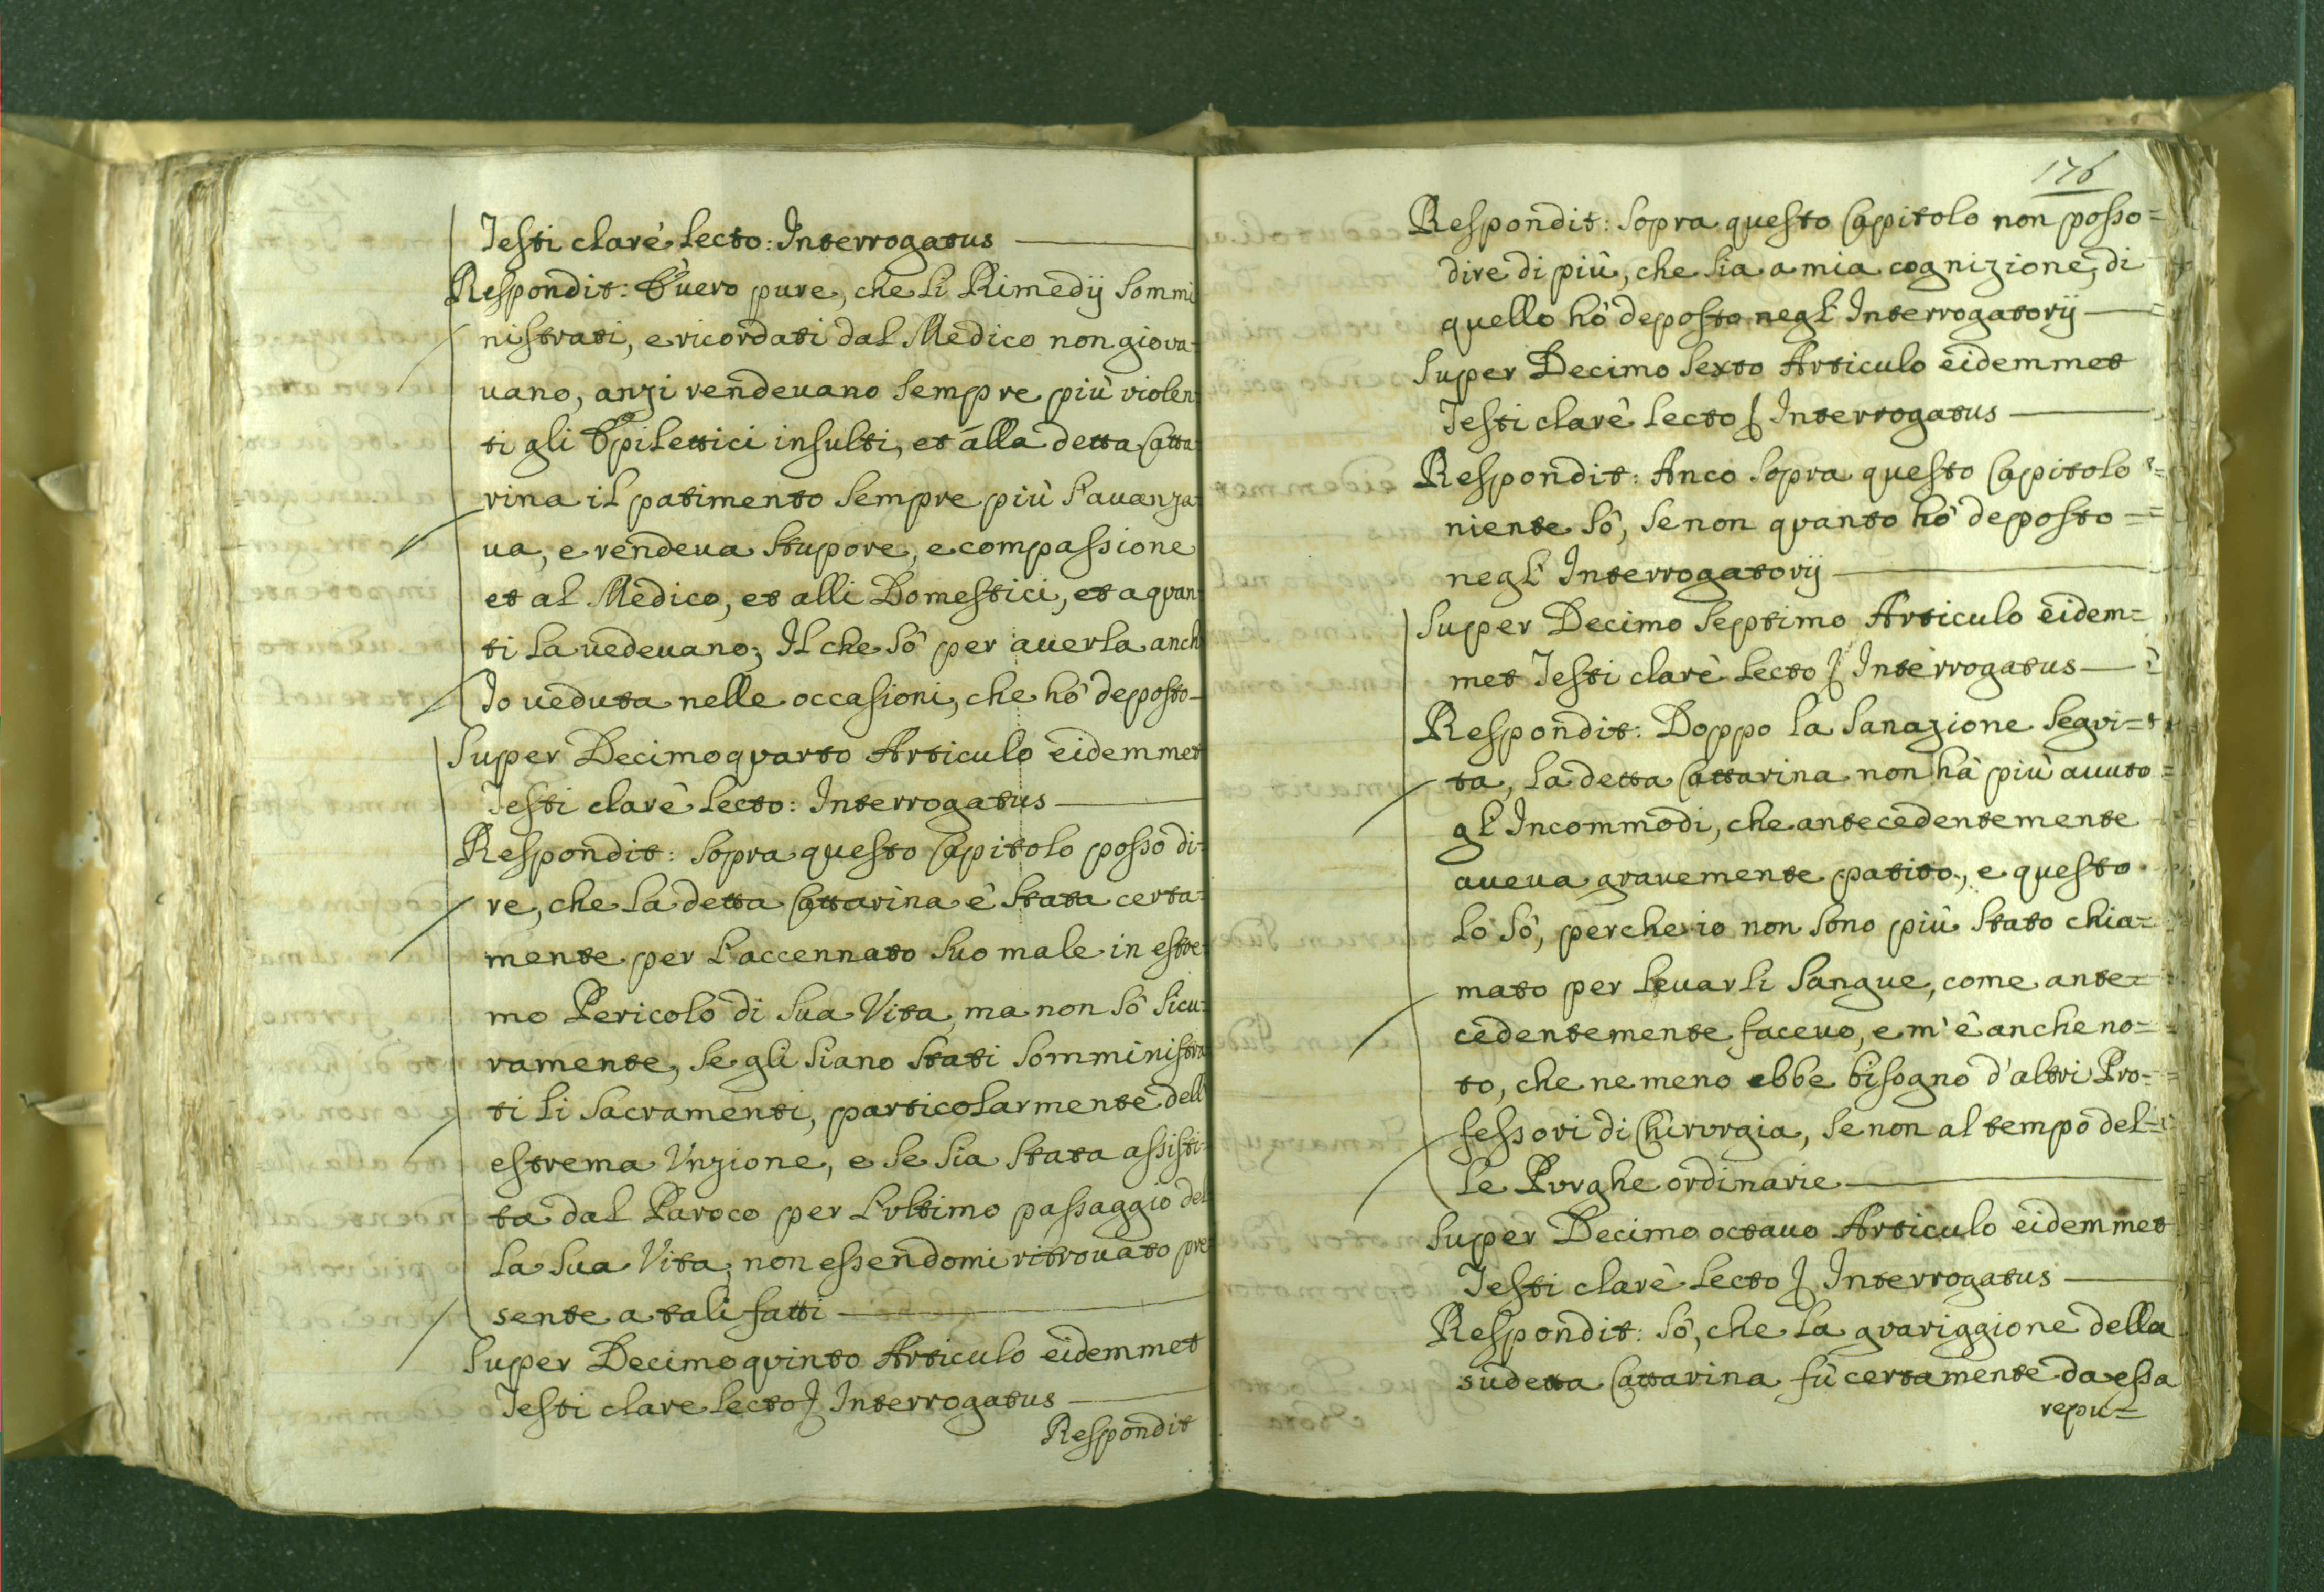 Testi clarè lecto: Interrogatus
Respondit: È uero pure, che li Rimedij sommi
nistrati, e ricordati dal Medico non gioua-
uano, anzi rendeuano sempre più violen-
ti gli Epilettici insulti, et alla detta Catta
rina il patimento sempre più s'auanza-
ua, e rendeua stupore, e compassione
et al Medico, et alli Domestici, et a quan-
ti la uedeuano; Il che sò per auerla anch
Io ueduta nelle occasioni, che hò deposto-
Super Decimoquarto Articulo eidemmet
Testi clarè lecto: Interrogatus
Respondit: Sopra questo Capitolo posso di-
re, che la detta Cattarina è stata certa-
mente per l'accennato suo male in estre-
mo Pericolo di sua Vita, ma non sò sicu-
ramente, se gli siano stati somministra
ti li Sacramenti, particolarmente dell'
estrema Unzione, e se sia stata assisti-
ta dal Paroco per l'ultimo passaggio del
la sua Vita, non essendomi ritrouato pre-
sente a tali fatti
Super Decimoquinto Articulo eidemmet
Testi clare lecto Interrogatus
Respondit
176
Respondit: Sopra questo Capitolo non posso=
dire di più, che sia a mia cognizione, di
quello hò deposto negl' Interrogatorij
Super Decimo Sexto Articulo eidemmet
Testi clarè lecto Interrogatus
Respondit: Anco sopra questo Capitolo
niente sò, se non quanto hò deposto=
negl' Interrogatorij
Super Decimo Septimo Articulo eidem=
met Testi clarè lecto Interrogatus
Respondit: Doppo la sanazione seqvi=
ta, la detta Cattarina non hà più auuto
gl' Incommodi, che antecedentemente
aueua grauemente patito, e questo
lo sò, perche io non sono più stato chia=
mato per leuarli sangue, come ante=
cedentemente faceuo, e m'è anche no=
to, che ne meno ebbe bisogno d'altri Pro-
fessori di Chirurgia, se non al tempo del-
le Purghe ordinarie
Super Decimo octauo Articulo eidemmet
Testi clarè lecto Interrogatus
Respondit: Sò, che la guariggione della
sudetta Cattarina fù certamente da essa
repu=